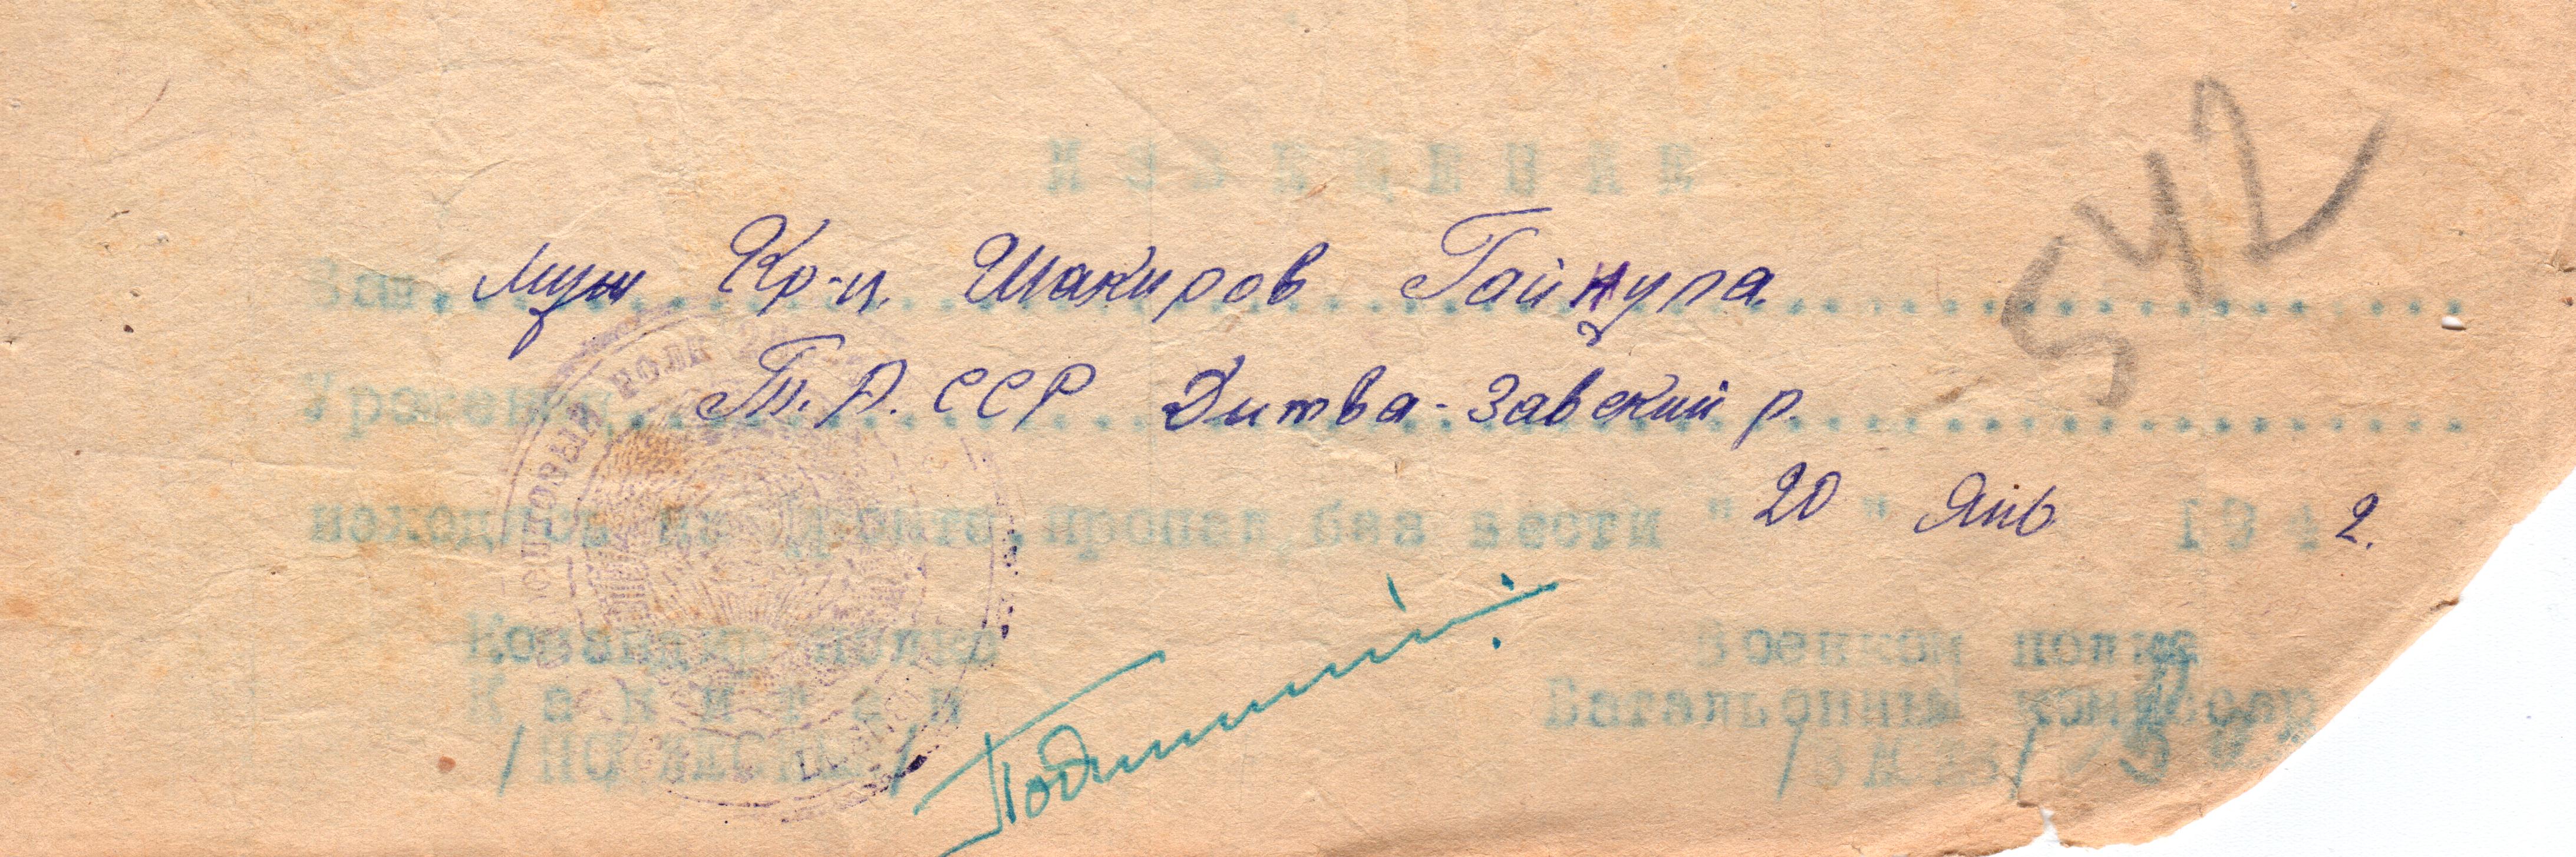 ИЗВЕЩЕНИЕ
542
Ваш муж Кр-ц. Шакиров Гайнула
Уроженец Т.А.ССР Дитва-Завский р.
находясь на фронте, пропал без вести "20" Янь 1942.
Командир полка Военком полка
Капитан Батальонный комиссар